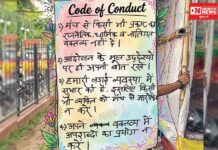 Code of Conduct
1) मंच से किसी भी प्रकार का
राजनैतिक, धार्मिक व जातिगत
वक्तव्य नहीं है।
2) आंदोलन के मूल उद्देश्यों
पर ही अपनी बात रखें।
3) हमारी लड़ाई व्यवस्था में
सुधार की है, इसलिए किसी
भी व्यक्ति को मंच से
करें।
4) अपने वक्तव्य में
अपशब्दों का प्रयोग न
करें।
NEWS